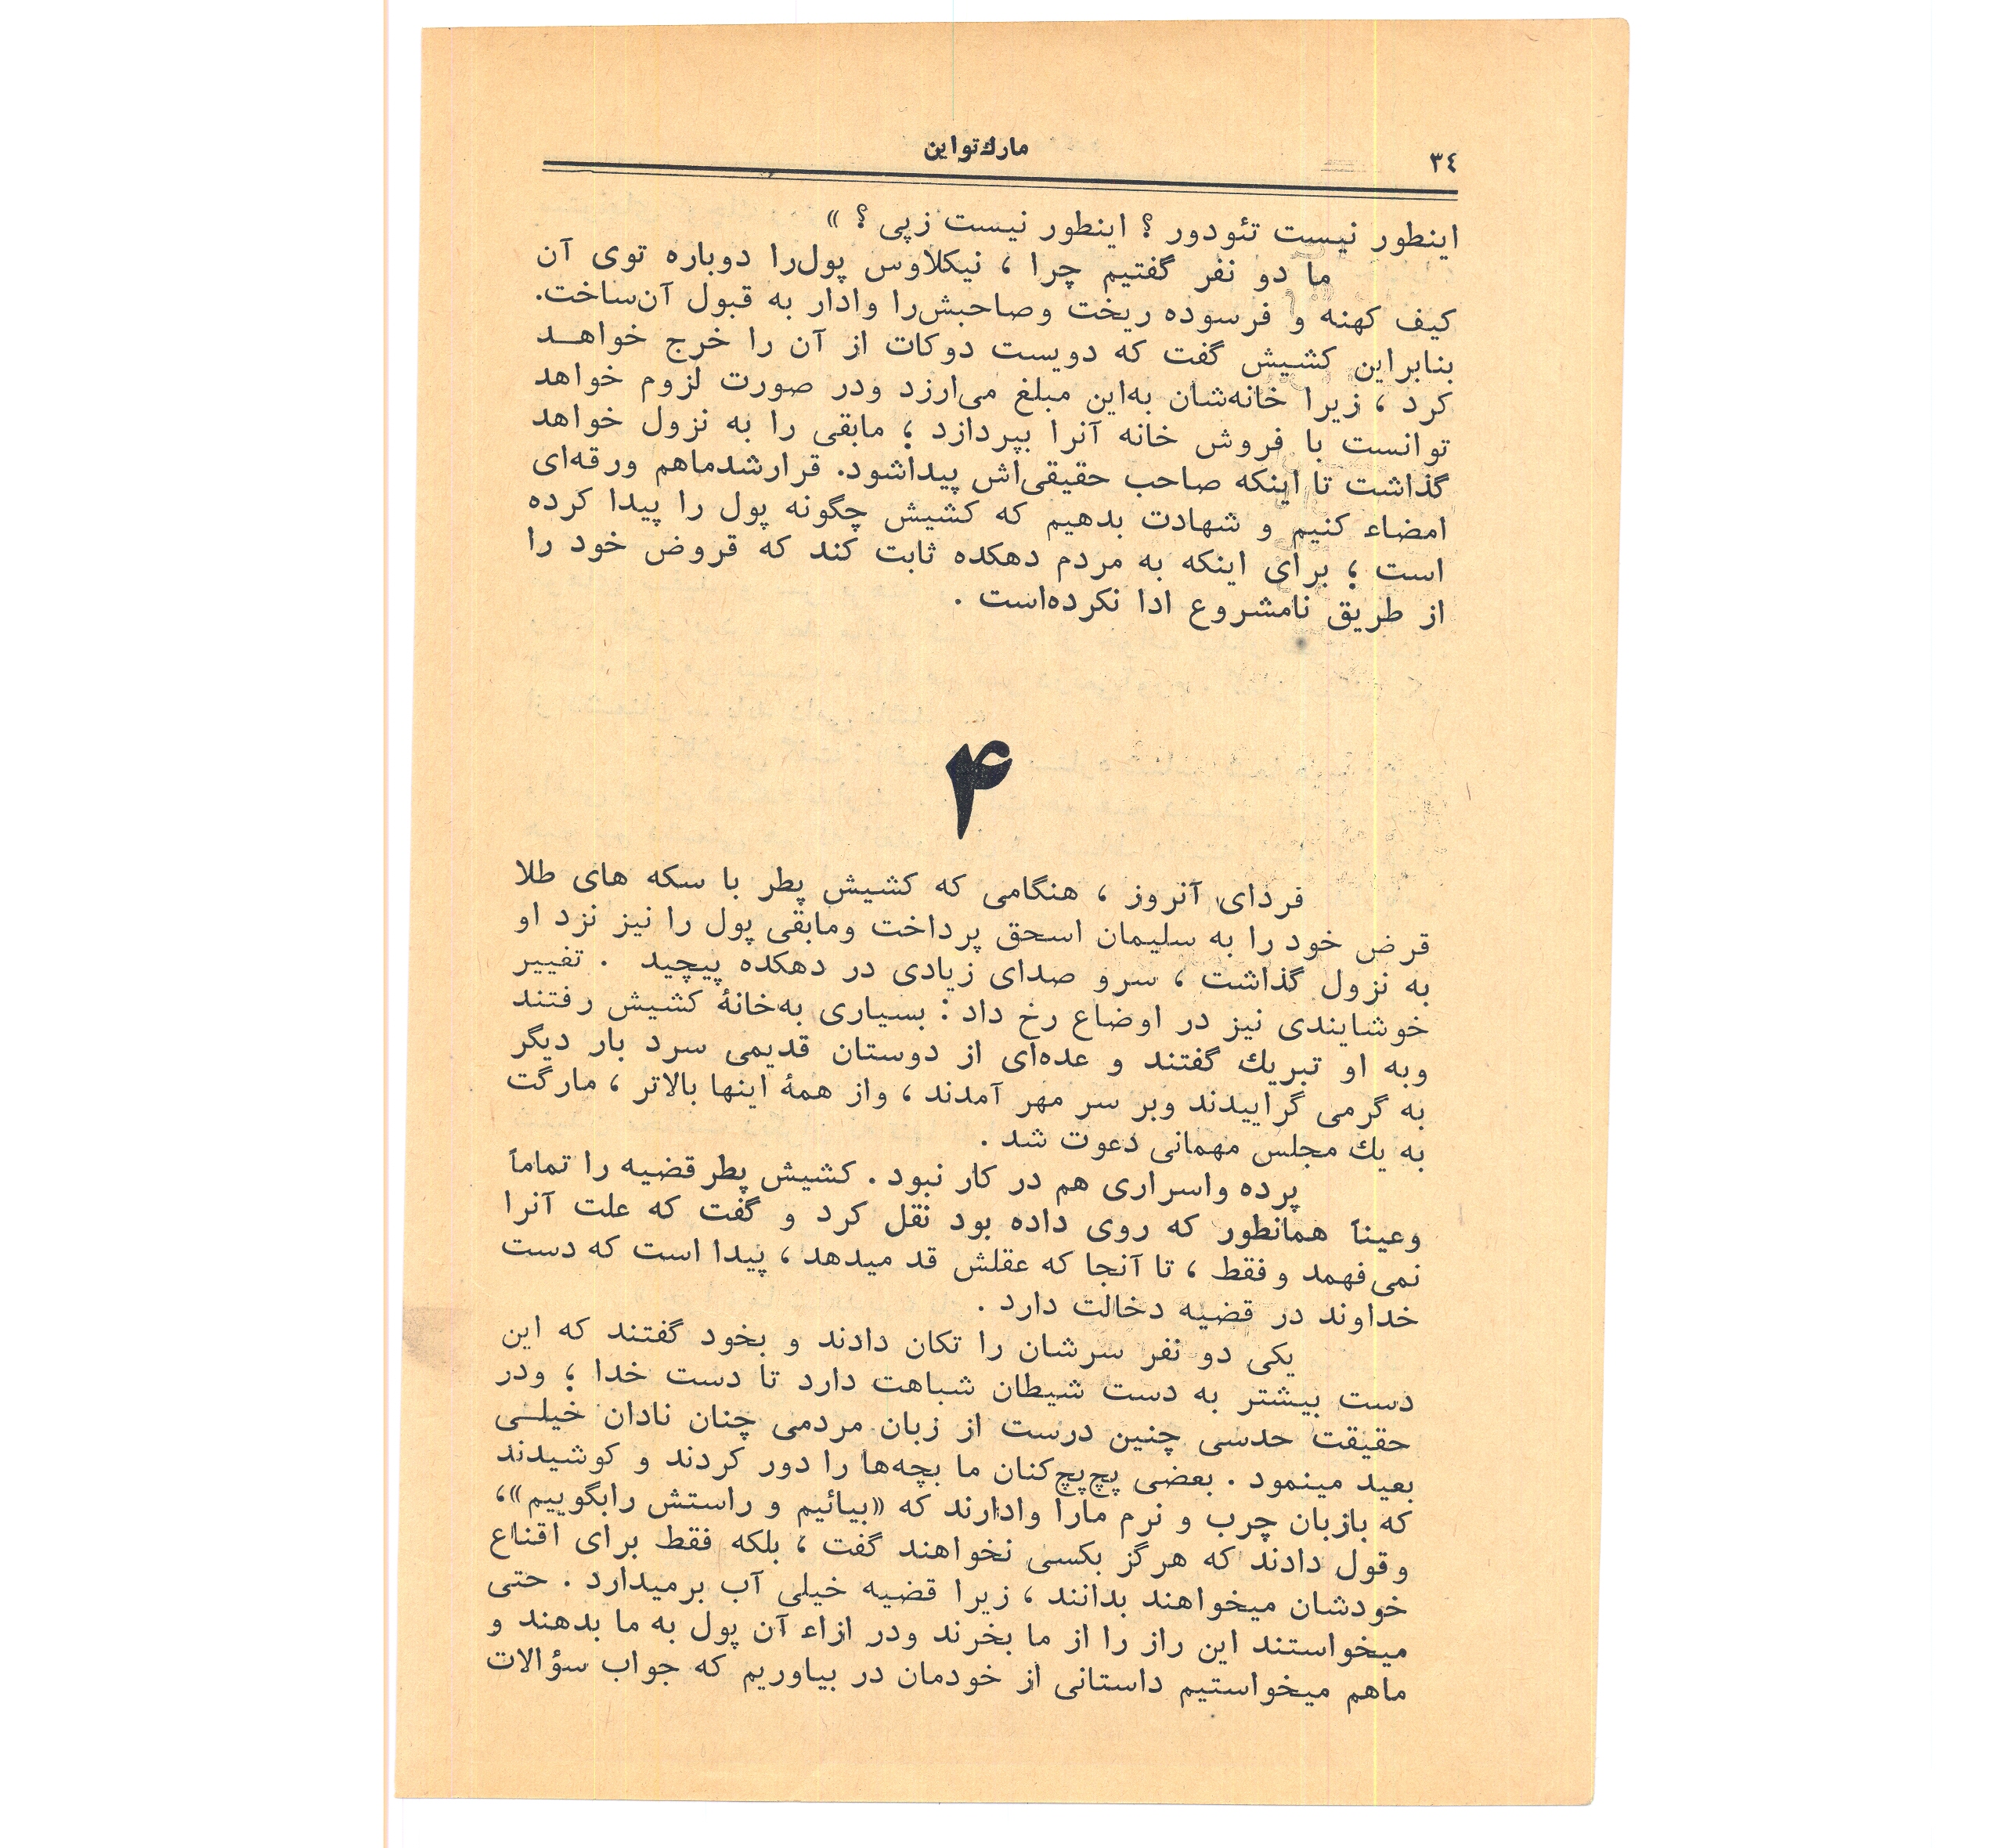 ۳٤
مارك تواین
اینطور نیست تئودور ؟ اینطور نیست زپی ؟ »
ما دو نفر گفتیم چرا ، نیکلاوس پول‌را دوباره توی آن
کیف کهنه و فرسوده ریخت وصاحبش‌را وادار به قبول آن‌ساخت.
بنابراین کشیش گفت که دویست دوکات از آن را خرج خواهـد
کرد ، زیرا خانه‌شان به‌این مبلغ می‌ارزد ودر صورت لزوم خواهد
توانست با فروش خانه آنرا بپردازد ؛ مابقی را به نزول خواهد
گذاشت تا اینکه صاحب حقیقی‌اش پیداشود. قرارشدماهم ورقه‌ای
امضاء کنیم و شهادت بدهیم که کشیش چگونه پول را پیدا کرده
است ؛ برای اینکه به مردم دهکده ثابت کند که قروض خود را
از طریق نامشروع ادا نکرده‌است .
۴
فردای آنروز ، هنگامی که کشیش پطر با سکه های طلا
قرض خود را به سلیمان اسحق پرداخت ومابقی پول را نیز نزد او
به نزول گذاشت ، سرو صدای زیادی در دهکده پیچید . تغییر
خوشایندی نیز در اوضاع رخ داد : بسیاری به‌خانهٔ کشیش رفتند
وبه او تبریك گفتند و عده‌ای از دوستان قدیمی سرد بار دیگر
به گرمی گراییدند وبر سر مهر آمدند ، واز همهٔ اینها بالاتر ، مارگت
به یك مجلس مهمانی دعوت شد .
پرده واسراری هم در کار نبود . کشیش پطر قضیه را تماماً
وعیناً همانطور که روی داده بود نقل کرد و گفت که علت آنرا
نمی‌فهمد و فقط ، تا آنجا که عقلش قد میدهد ، پیدا است که دست
خداوند در قضیه دخالت دارد .
یکی دو نفر سرشان را تکان دادند و بخود گفتند که این
دست بیشتر به دست شیطان شباهت دارد تا دست خدا ؛ ودر
حقیقت حدسی چنین درست از زبان مردمی چنان نادان خیلـی
بعید مینمود . بعضی پچ‌پچ‌کنان ما بچه‌ها را دور کردند و کوشیدند
که بازبان چرب و نرم مارا وادارند که «بیائیم و راستش رابگوییم»،
وقول دادند که هرگز بکسی نخواهند گفت ، بلکه فقط برای اقناع
خودشان میخواهند بدانند ، زیرا قضیه خیلی آب برمیدارد . حتی
میخواستند این راز را از ما بخرند ودر ازاء آن پول به ما بدهند و
ماهم میخواستیم داستانی از خودمان در بیاوریم که جواب سؤالات